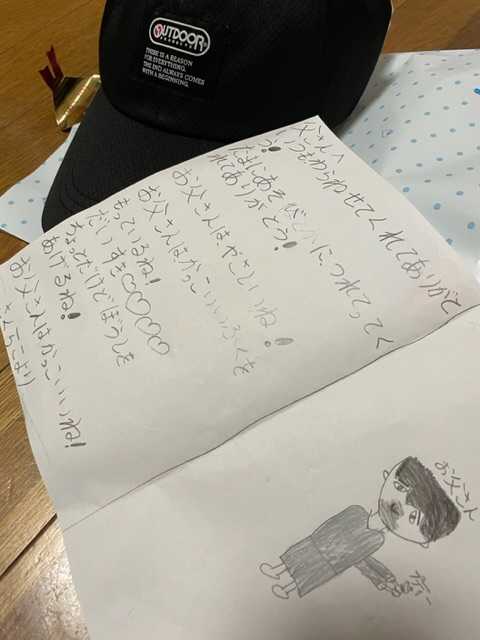 OUTDOOR
PRODUCTS
THERE IS A REASON
FOR EVERYTHING.
THE END ALWAYS COMES
WITH A BEGINNING.
父さんへ
いつもわらわせてくれてありがとう!
たまにあそびとかにつれてってく
れてありがとう!
お父さんはやさしいね!
お父さんはかっこいいふくを
もっているね!
だいすき♡♡♡♡
ちょっとだけどぼうしを
あげるね!
お父さんはかっこいいね!
さくらこより
お父さん